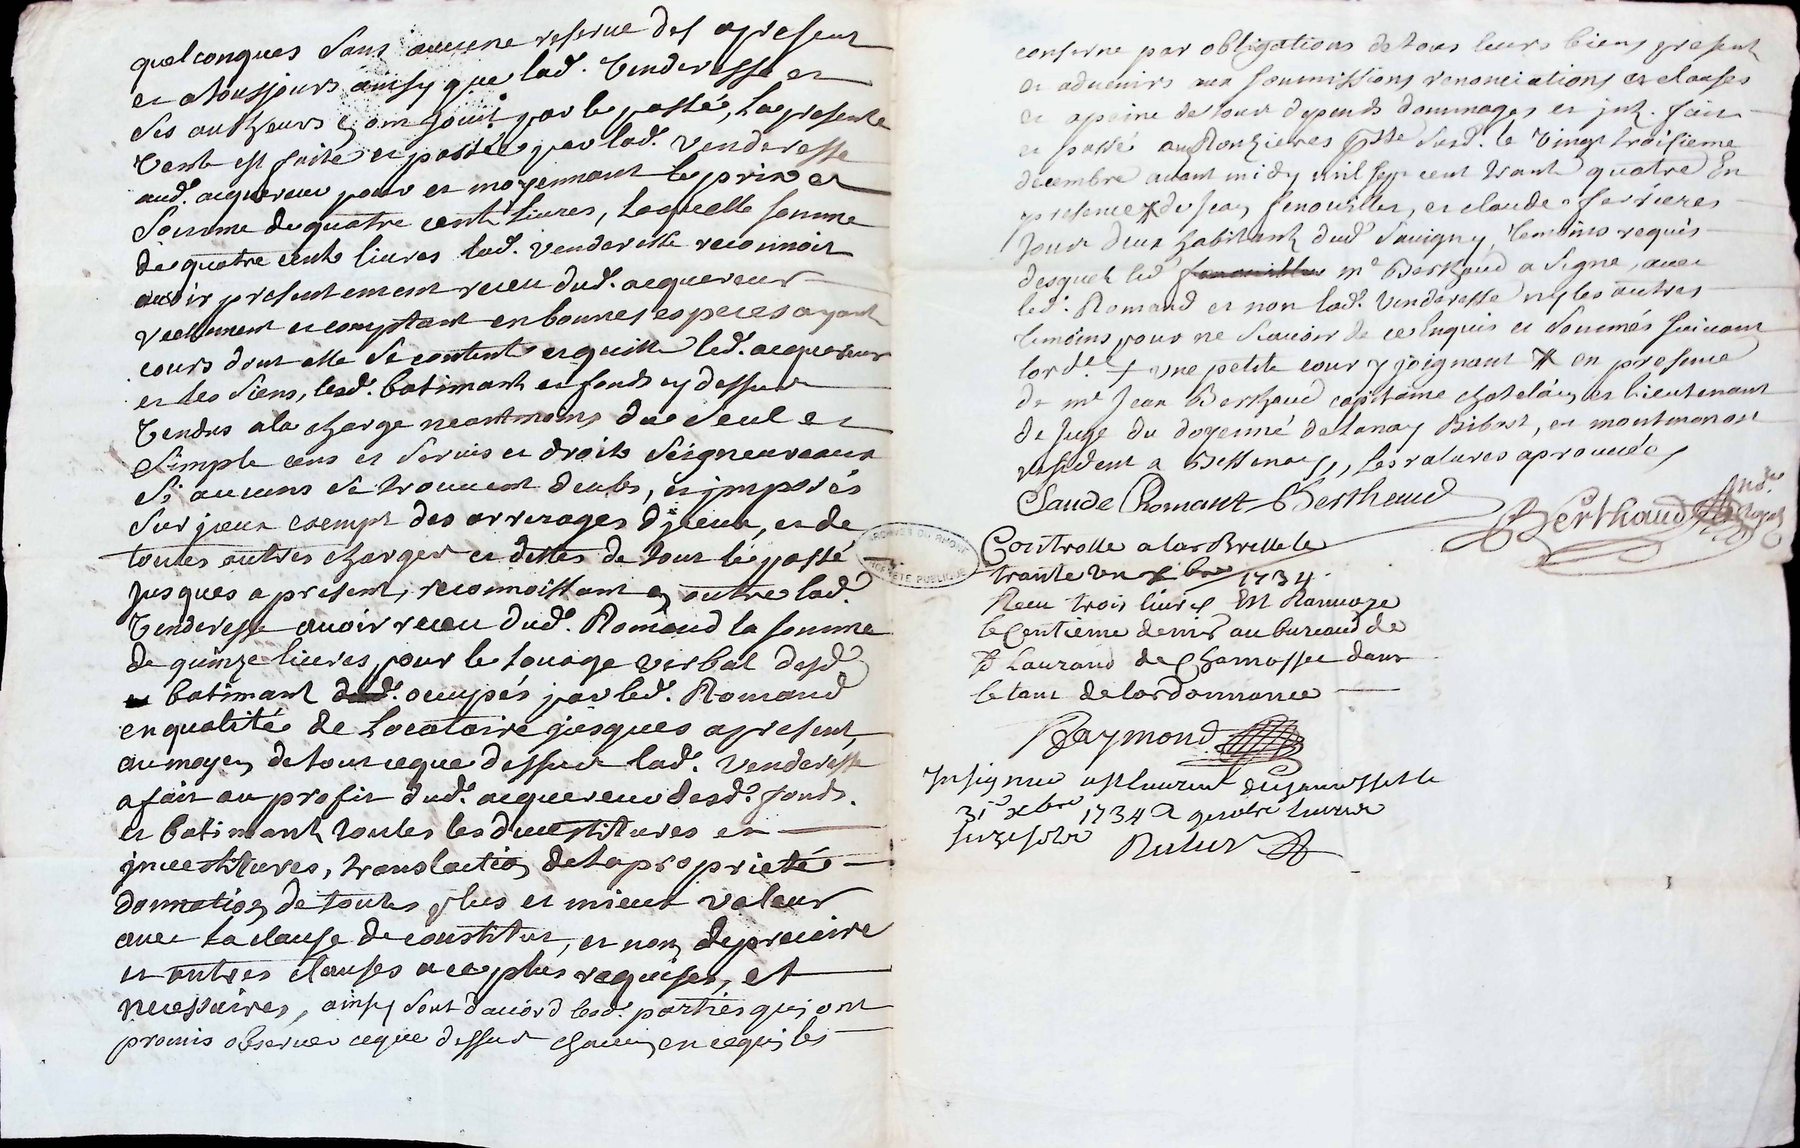 quelconques sans aucune reserve des apresent
et atousjours ainsy que lad. Venderesse et
ses autheurs en ont jouit par le passé, La presente
Vente est faite et passée par lad. Venderesse
aud. acquereur pour et moyennant le prix et
Somme de quatre cent livres, Laquelle somme
de quatre cents livres lad. Venderesse reconnoit
avoir presentement receu dud. acquereur
reelement et comptant en bonnes especes ayant
cours dont elle se contente et quitte led. acquereur
et les siens, lesd. batimant et fonds cy dessus
Vendus ala charge neantmoins du seul et
Simple cens et servis et droits Seigneureaux
Si aucuns se trouvent deubs, et imposés
Sur jceux exempt des arrerages d'jceux, et de
toutes autres charges et dettes de tout le passé
Jusques apresent, reconnoissant en outre lad.
Venderesse avoir receu dud. Romand la somme
de quinze livres pour le louage verbal desd.
batimant occupés par led. Romand
en qualité de Locataire jusques apresent,
au moyen de tout ceque dessus lad. Venderesse
a fait au profit dud. acquereur desd. fonds.
et batimant toutes les devestitures et
jnvestitures, translation de la proprieté
donnation de toutes plus et mieux valeur
avec La clause de constitut, et non de precaire
et autres clauses a ce plus requises, et
necessaires, ainsy sont d'accord lesd. parties qui ont
promis observer ceque dessus chacun en cequi les
conserne par obligations de tous leurs biens present
et advenirs aux soumissions renonciations et clauses
et apeine de tous depends dommages et jnt. fait
et passé au Ronzieres susd. le Vingt troisieme
decembre avant midy mil sept cent trante quatre En
presence de Jean fenouillet, et claude ferrieres
tous deux habitant dud. Savigny, temoins requis
desquels led. fenouillet me Berthaud a signe, avec
led. Romand et non lad. Venderesse ny les autres
temoins pour ne scavoir de ce Enquis et sommés suivant
lord.ce + une petite cour y joignant en presence
de me Jean Berthaud capitaine chatelain et Lieutenant
de Juge du doyenné de Lanay Bibost, et montmenost
resident a Bessenay, Les ratures aprouvées
Claude Romant Berthaud
Berthaud
Controlle a lar Brelle le
trante un Xbre 1734
Receu trois livres
le Centieme denier au bureaud de
St Laurand de Chamosset dans
le tant de lordonnance
Raymond
31e xbre 1734